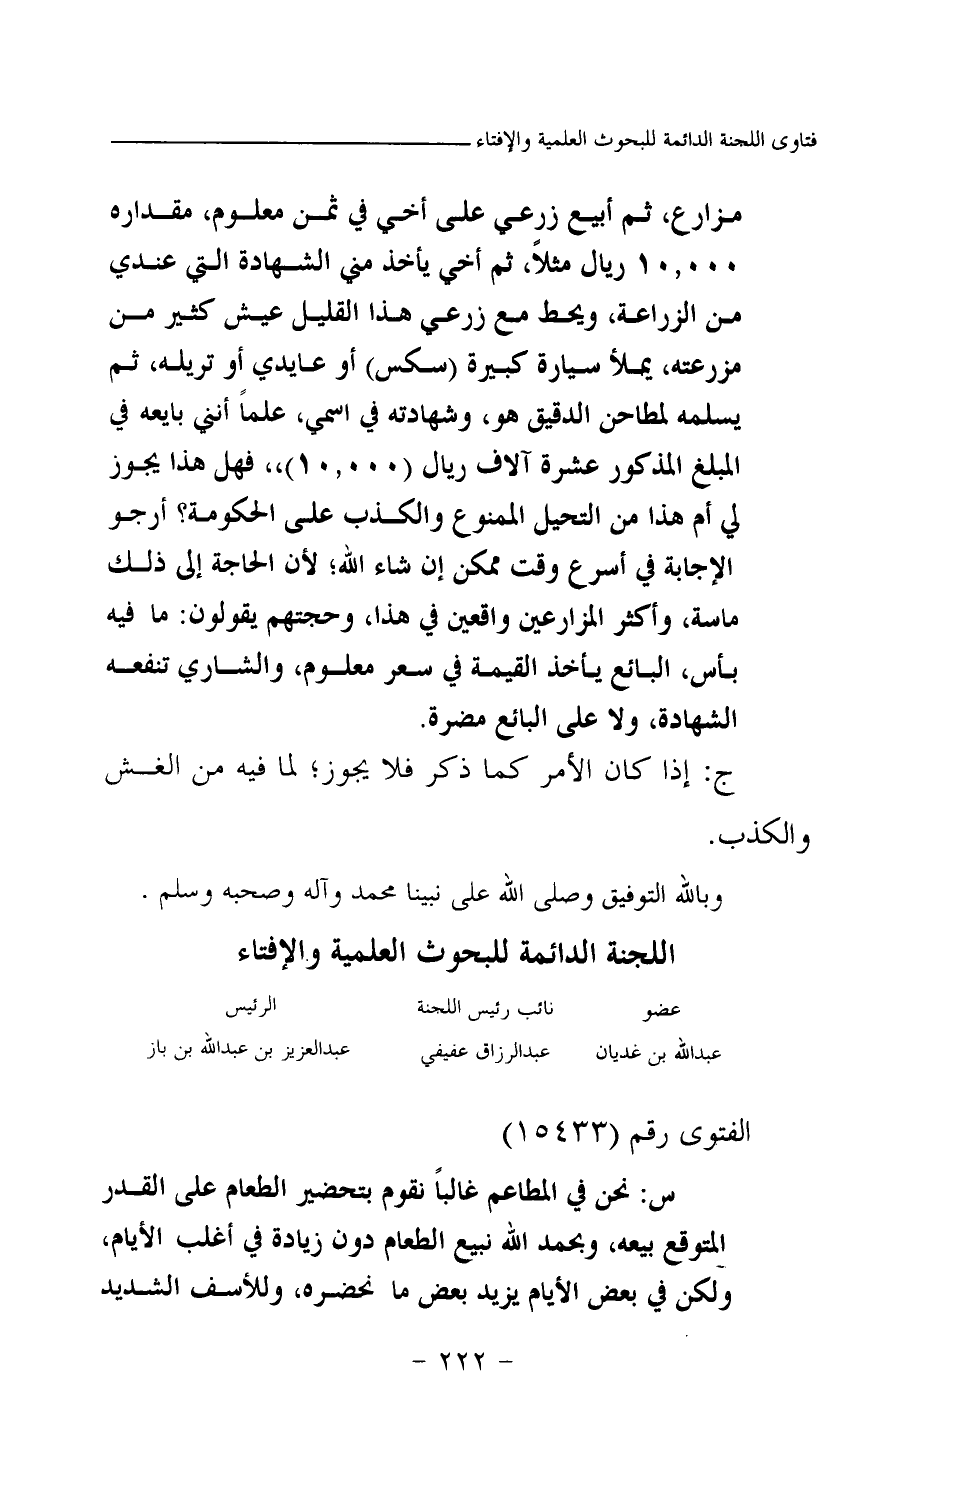 فتاوى اللجنة الدائمة للبحوث العلمية والإفتاء
مزارع، ثم أبيع زرعي على أخي في ثمن معلوم، مقداره
١٠,٠٠٠ ريال مثلاً، ثم أخي يأخذ مني الشهادة التي عندي
من الزراعة، ويحط مع زرعي هذا القليل عيش كثير من
مزرعته، يملأ سيارة كبيرة (سكس) أو عايدي أو تريله، ثم
يسلمه لمطاحن الدقيق هو، وشهادته في اسمي، علماً أنني بايعه في
المبلغ المذكور عشرة آلاف ريال (١٠,٠٠٠)،، فهل هذا يجوز
لي أم هذا من التحيل الممنوع والكذب على الحكومة؟ أرجو
الإجابة في أسرع وقت ممكن إن شاء الله؛ لأن الحاجة إلى ذلك
ماسة، وأكثر المزارعين واقعين في هذا، وحجتهم يقولون: ما فيه
بأس، البائع يأخذ القيمة في سعر معلوم، والشاري تنفعه
الشهادة، ولا على البائع مضرة.
ج: إذا كان الأمر كما ذكر فلا يجوز؛ لما فيه من الغش
والكذب.
وبالله التوفيق وصلى الله على نبينا محمد وآله وصحبه وسلم .
اللجنة الدائمة للبحوث العلمية والإفتاء
عضو نائب رئيس اللجنة الرئيس
عبدالله بن غديان عبدالرزاق عفيفي عبدالعزيز بن عبدالله بن باز
الفتوى رقم (١٥٤٣٣)
س: نحن في المطاعم غالباً نقوم بتحضير الطعام على القدر
المتوقع بيعه، وبحمد الله نبيع الطعام دون زيادة في أغلب الأيام،
ولكن في بعض الأيام يزيد بعض ما نحضره، وللأسف الشديد
- ٢٢٢ -